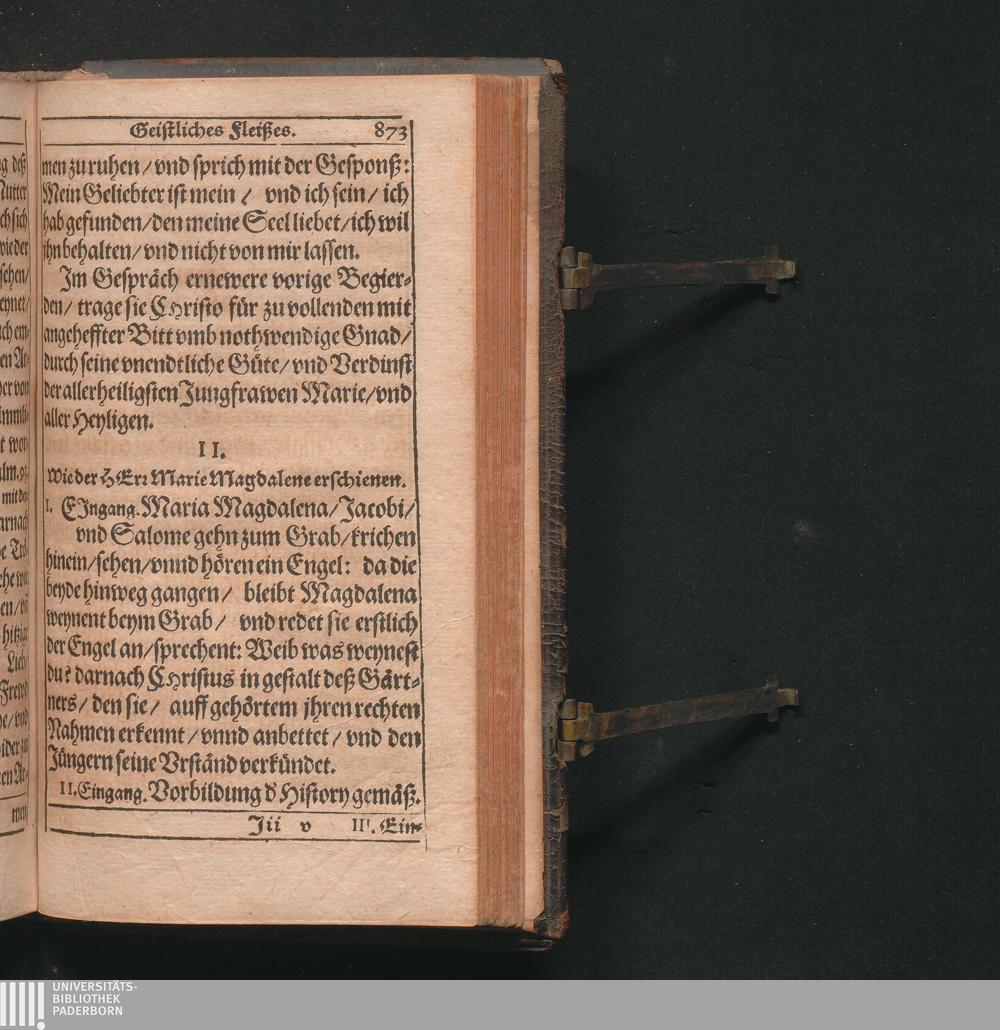 Geistliches Fleißes. 873
men zu ruhen / vnd sprich mit der Gesponß:
Mein Geliebter ist mein / vnd ich sein / ich
hab gefunden / den meine Seel liebet / ich wil
ihn behalten / vnd nicht von mir lassen.
Im Gespräch ernewere vorige Begier-
den / trage sie Christo für zu vollenden mit
angeheffter Bitt vmb nothwendige Gnad /
durch seine vnendtliche Güte / vnd Verdinst
der allerheiligsten Jungfrawen Marie / vnd
aller Heyligen.
II.
Wie der HErr Marie Magdalene erschienen.
I. EJngang. Maria Magdalena / Jacobi /
vnd Salome gehn zum Grab / krichen
hinein / sehen / vnnd hören ein Engel: da die
beyde hinweg gangen / bleibt Magdalena
weynent beym Grab / vnd redet sie erstlich
der Engel an / sprechent: Weib was weynest
du? darnach Christus in gestalt deß Gärt-
ners / den sie / auff gehörtem jhren rechten
Nahmen erkennt / vnnd anbettet / vnd den
Jüngern seine Vrständ verkündet.
II. Eingang. Vorbildung d' History gemäß.
Iii v III. Ein-
UNIVERSITÄTS-
BIBLIOTHEK
PADERBORN